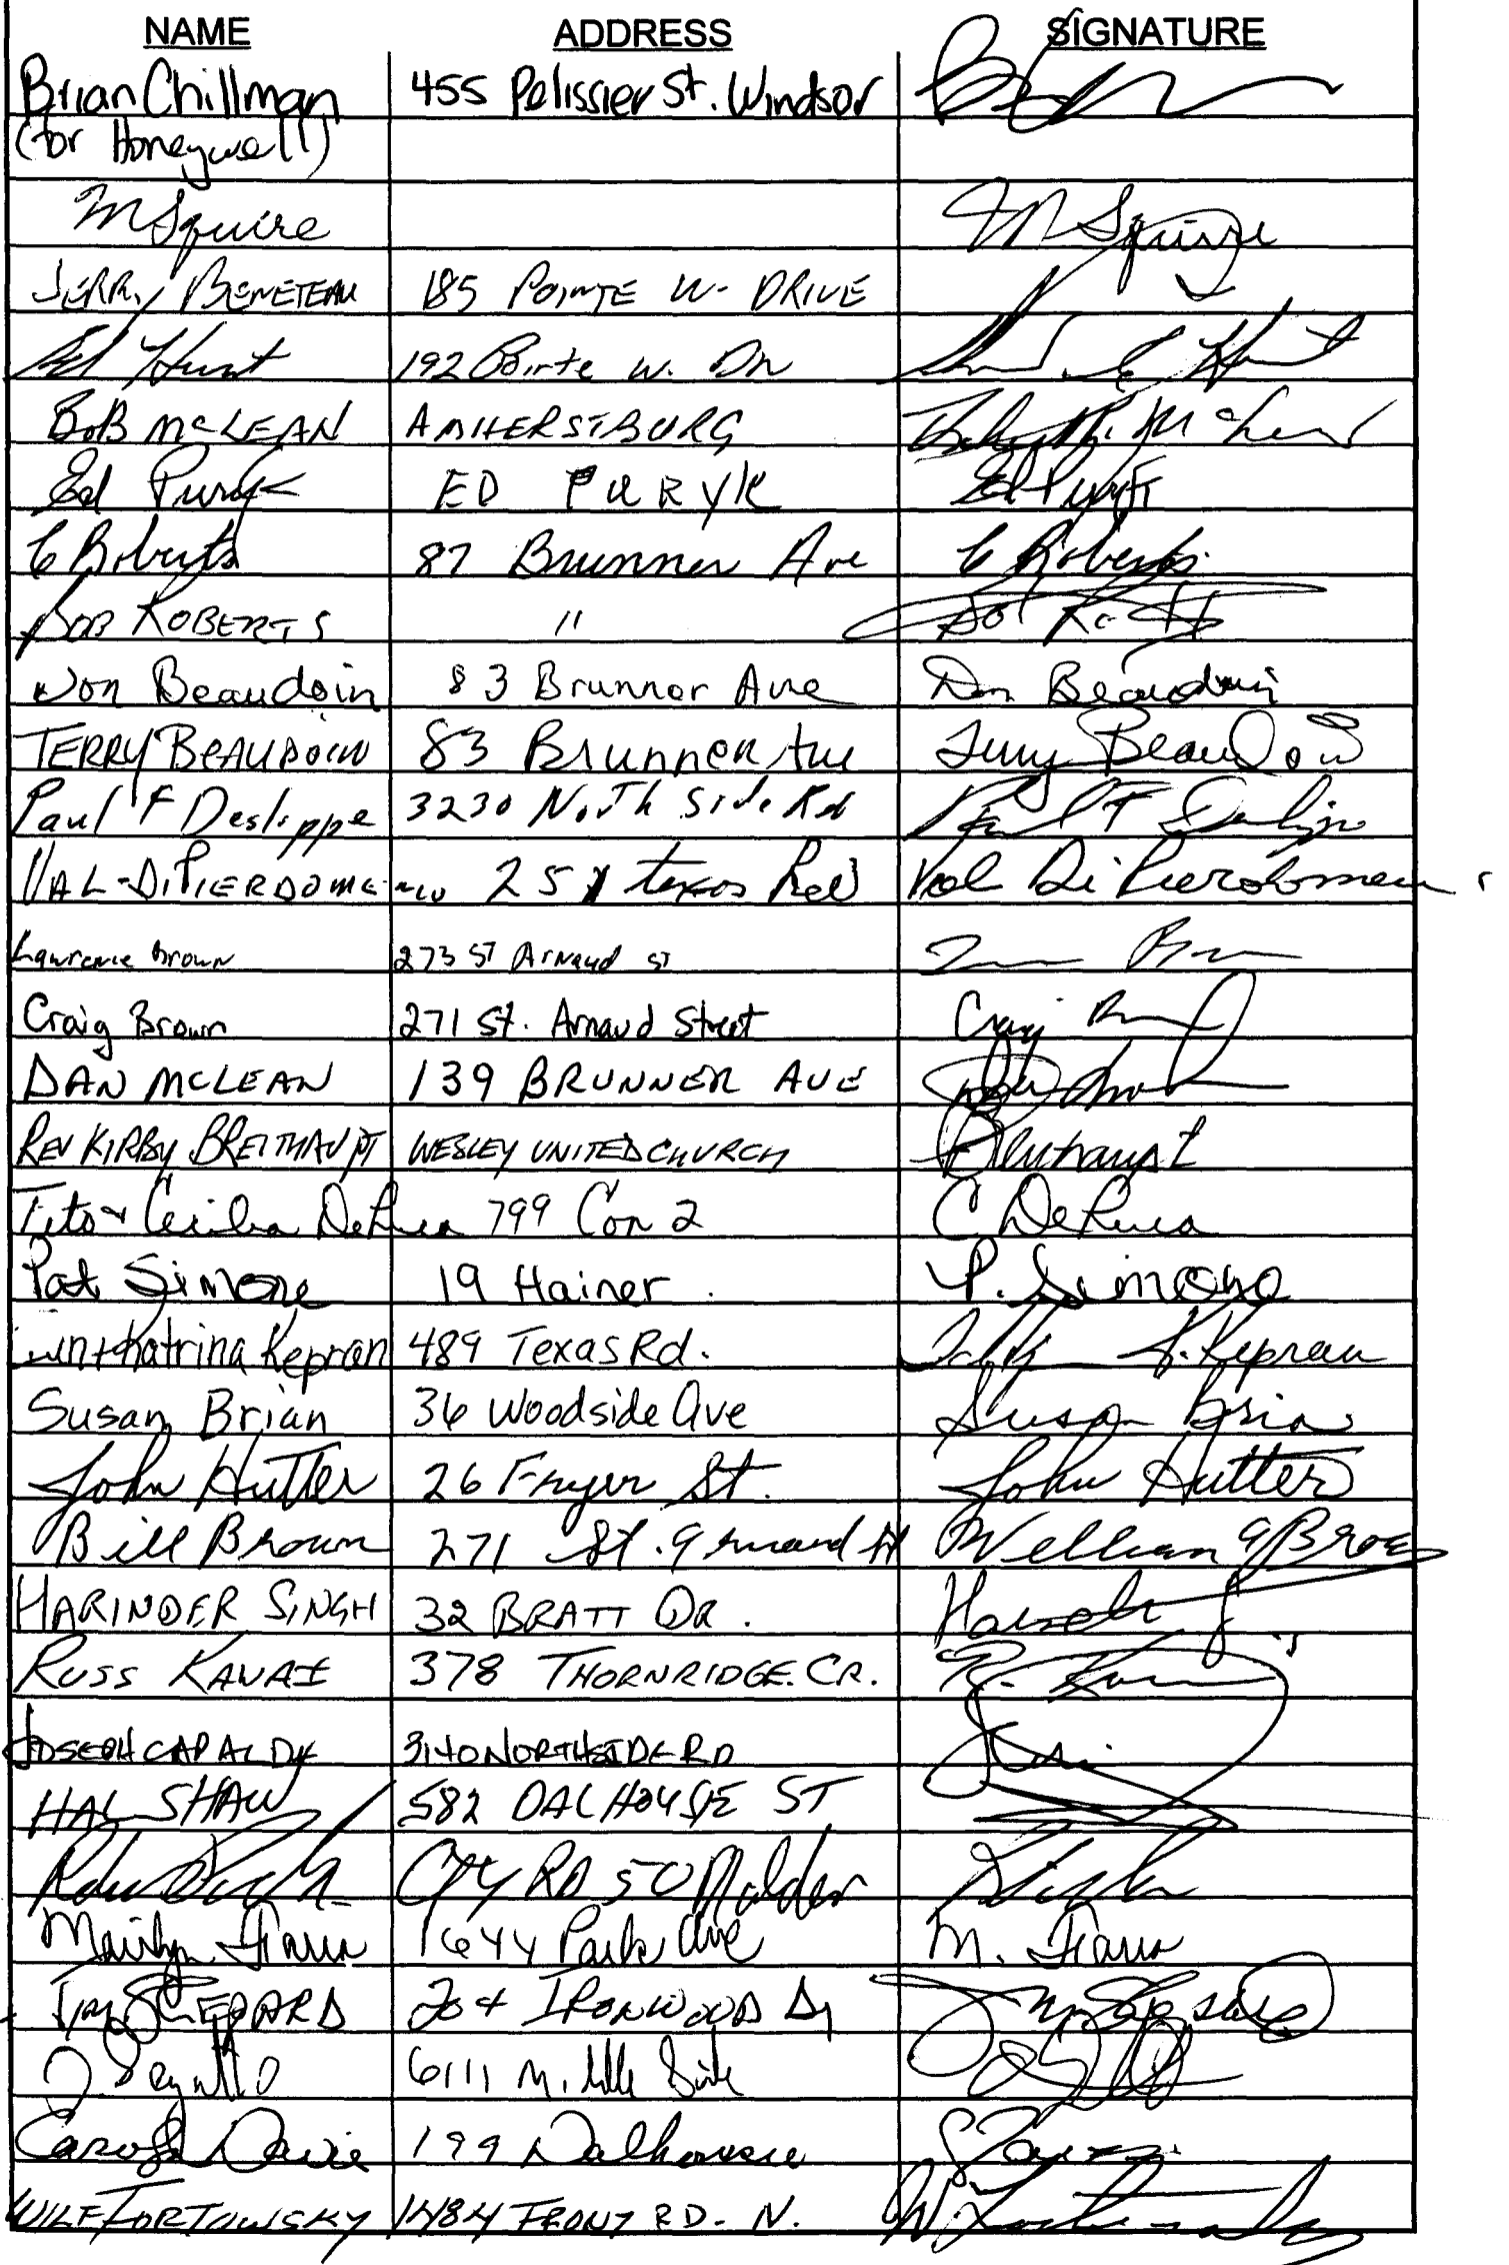 NAME ADDRESS SIGNATURE
Brian Chillman 455 Pelissier St. Windsor
(for Honeywell)
M Squire M Squire
JERRY BENETEAU 185 POINTE W. DRIVE
Ed Hunt 192 Pointe W. Dr Hunt
BOB MCLEAN AMHERSTBURG McLean
Ed Puryk ED PURYK Ed Puryk
C Roberts 87 Brunner Ave C Roberts
BOB ROBERTS "
Don Beaudoin 83 Brunner Ave Don Beaudoin
TERRY BEAUDOIN 83 Brunner Ave Terry Beaudoin
Paul F Deslippe 3230 North Side Rd Paul F
VAL-DIPIERDOMENICO 251 texas Rd Val DiPierdomenico
Lawrence Brown 273 ST Arnaud ST
Craig Brown 271 St. Arnaud Street Craig
DAN MCLEAN 139 BRUNNER AVE
REV KIRBY BREITHAUPT WESLEY UNITED CHURCH Breithaupt
Tito & Cecilia DeLuca 799 Con 2 C DeLuca
Pat Simone 19 Hainer P. Simone
Katrina Kepran 489 Texas Rd. Kepran
Susan Brian 36 Woodside Ave Susan Brian
John Hutter 26 Fryer St. John Hutter
Bill Brown 271 St. Arnaud St William Brown
HARINDER SINGH 32 BRATT DR.
RUSS KANAI 378 THORNRIDGE. CR. R.
JOSEPH CAPALDY 3140 NORTHSIDE RD
HAL SHAW 582 DALHOUSIE ST
CTY RD 50 Malden
1644 Park Ave M.
204 IRONWOOD Dr
6111 Middle Side
199 Dalhousie
WILF FORTOWSKY 1484 FRONT RD. N. W